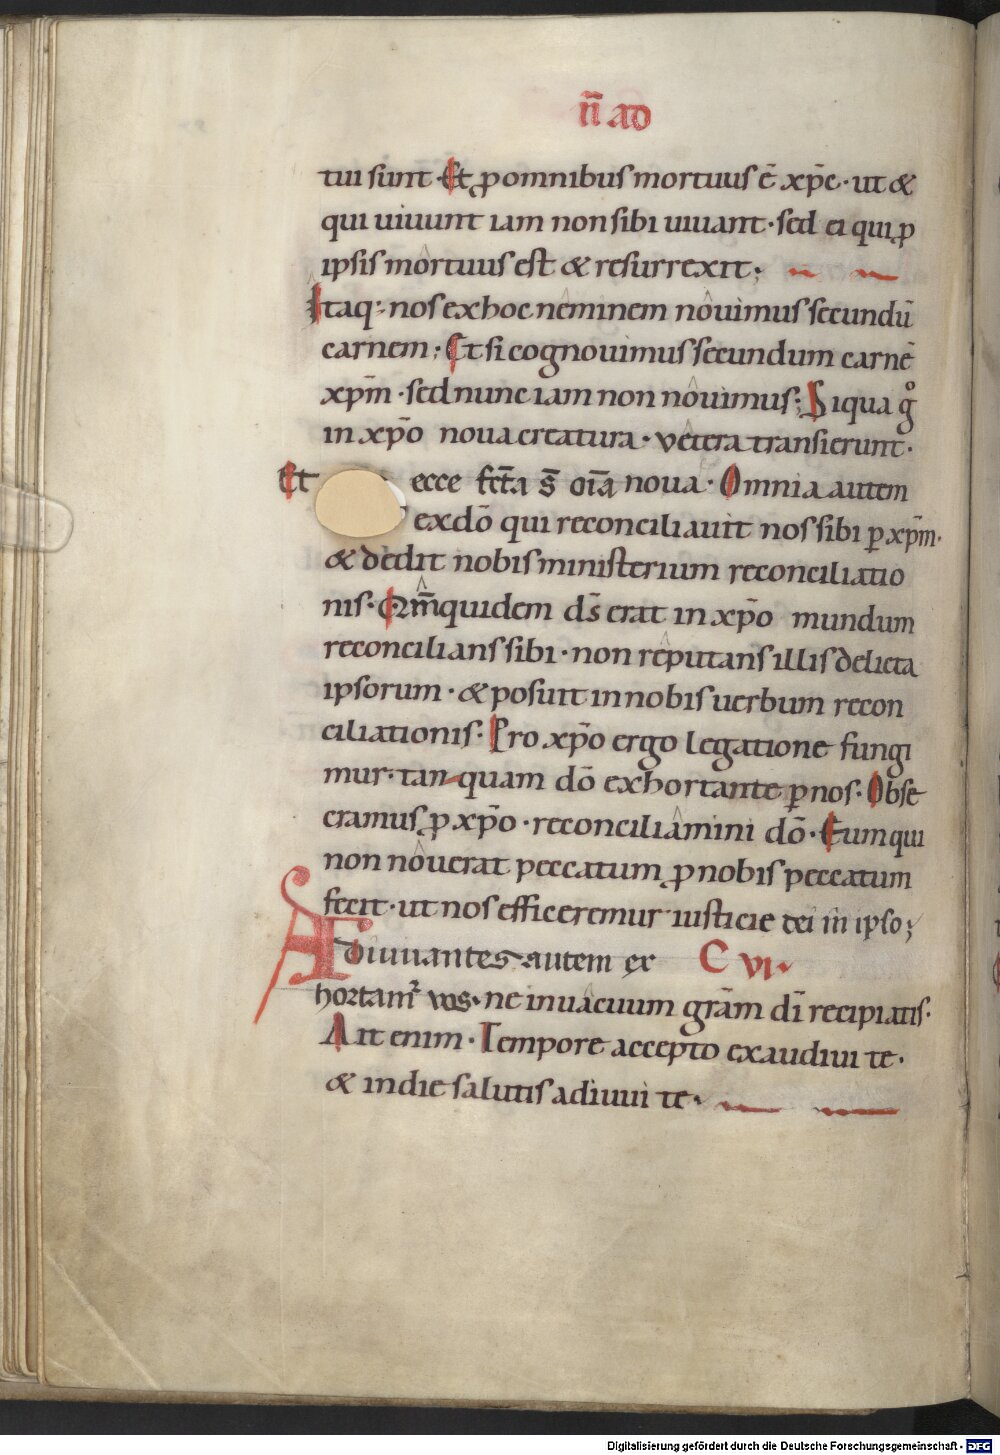 ii̅ ad
tui sunt· Et ꝓ omnibus mortuus e̅ xp̅c· ut &
qui uiuunt iam non sibi uiuant· sed ei qui ꝓ
ipsis mortuus est & resurrexit;
Itaq; nos ex hoc neminem nouimus secundu̅
carnem; Et si cognouimus secundum carne̅
xp̅m· sed nunc iam non nouimus; Siqua gͦ
in xp̅o noua creatura· vetera transierunt·
Et ecce fct̅a s̅ oi̅a noua· Omnia autem
ex do̅ qui reconciliauit nos sibi ꝑ xp̅m·
& dedit nobis ministerium reconciliatio
nis· Qm̅quidem ds̅ erat in xp̅o mundum
reconcilians sibi· non reputans illis delicta
ipsorum· & posuit in nobis uerbum recon
ciliationis· Pro xp̅o ergo legatione fungi
mur· tanquam do̅ exhortante ꝑ nos· Obse
cramus ꝓ xp̅o· reconciliamini do̅· Eum qui
non nouerat peccatum ꝓ nobis peccatum
fecit· ut nos efficeremur iusticie dei in ipso;
Adiuuantes autem ex C VI·
hortamr̅ vos· ne in uacuum gra̅m di̅ recipiatis·
Ait enim· Tempore accepto exaudiui te·
& in die salutis adiuui te·
Digitalisierung gefördert durch die Deutsche Forschungsgemeinschaft - DFG